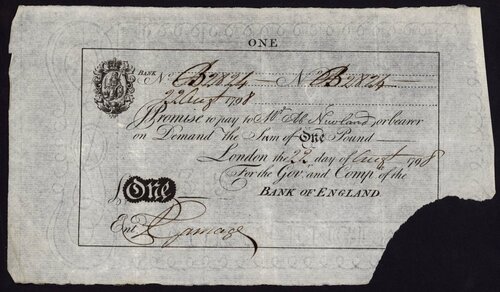 ONE
BANK No. B2824 — No. B2824
22 Augt 1798
I Promise to pay to Mr. Ab. Newland, or bearer
on Demand the Sum of One Pound
London the 22 day of Augt 1798
For the Govr. and Compa. of the
BANK OF ENGLAND.
£ One
Entd.